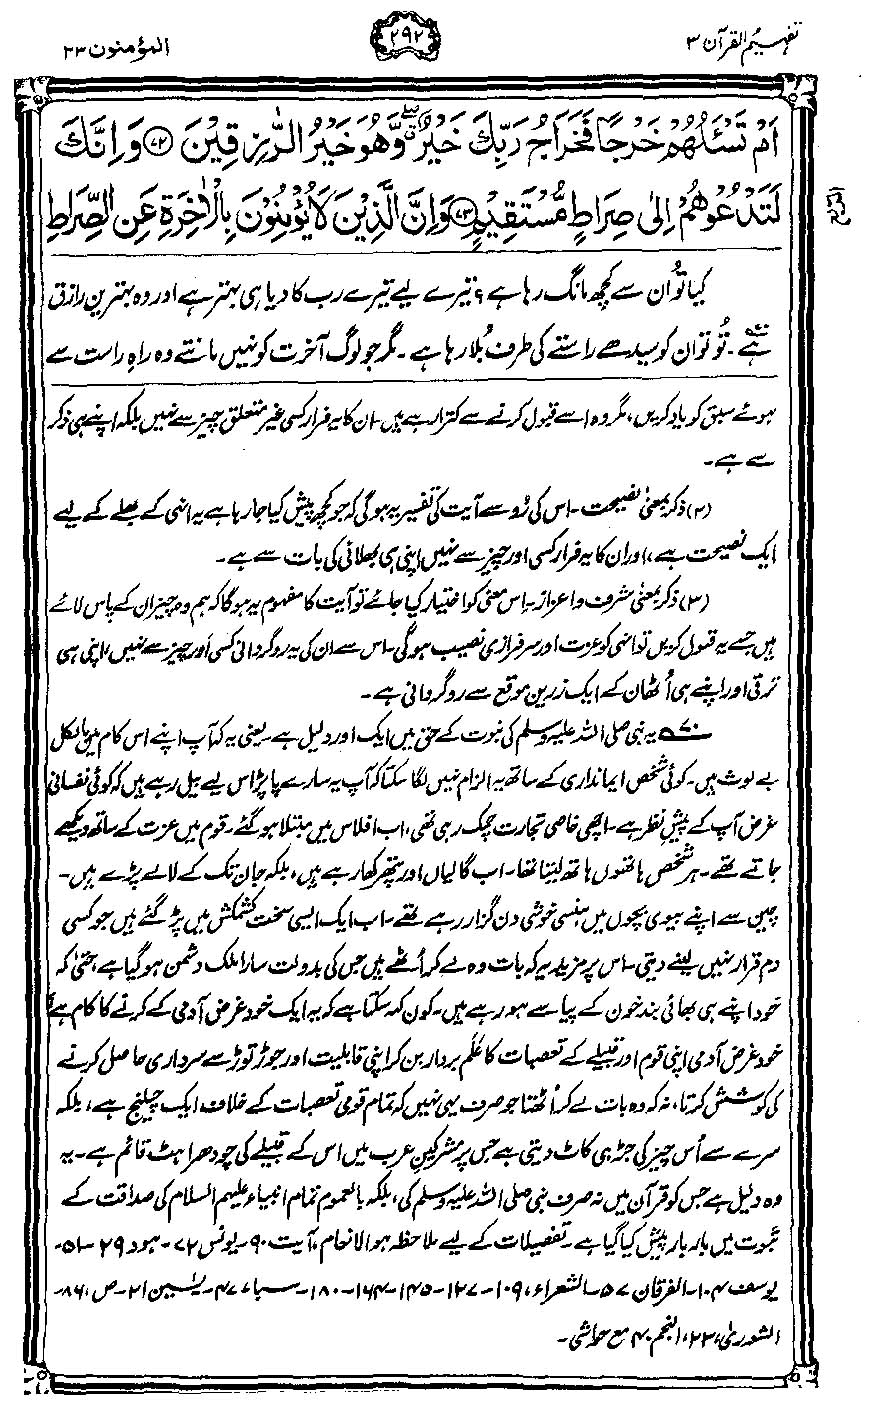 تفہیم القرآن ۳
۲۹۲
المؤمنون ۲۳
اَمْ تَسْـَٔلُهُمْ خَرْجًا فَخَرَاجُ رَبِّكَ خَيْرٌ ۖ وَّهُوَ خَيْرُ الرّٰزِقِيْنَ ﴿۷۲﴾ وَاِنَّكَ
لَتَدْعُوْهُمْ اِلٰى صِرَاطٍ مُّسْتَقِيْمٍ ﴿۷۳﴾ وَاِنَّ الَّذِيْنَ لَا يُؤْمِنُوْنَ بِالْاٰخِرَةِ عَنِ الصِّرَاطِ
کیا تُو اُن سے کچھ مانگ رہا ہے؟ تیرے لیے تیرے رب کا دیا ہی بہتر ہے اور وہ بہترین رازق
ہے۔ تُو تو ان کو سیدھے راستے کی طرف بُلا رہا ہے۔ مگر جو لوگ آخرت کو نہیں مانتے وہ راہِ راست سے
ہوئے سبق کو یاد کریں، مگر وہ اسے قبول کرنے سے کترا رہے ہیں۔ ان کا یہ فرار کسی غیر متعلق چیز سے نہیں بلکہ اپنے ہی ذکر
سے ہے۔
(۲) ذکر بمعنیٰ نصیحت۔ اس کی رُو سے آیت کی تفسیر یہ ہوگی کہ جو کچھ پیش کیا جا رہا ہے یہ انہی کے بھلے کے لیے
ایک نصیحت ہے، اور ان کا یہ فرار کسی اور چیز سے نہیں اپنی ہی بھلائی کی بات سے ہے۔
(۳) ذکر بمعنیٰ شرف و اعزاز۔ اس معنی کو اختیار کیا جائے تو آیت کا مفہوم یہ ہوگا کہ ہم وہ چیز ان کے پاس لائے
ہیں جسے یہ قبول کریں تو انہی کو عزت اور سرفرازی نصیب ہوگی۔ اس سے ان کی یہ روگردانی کسی اور چیز سے نہیں، اپنی ہی
ترقی اور اپنے ہی اُٹھان کے ایک زرین موقع سے روگردانی ہے۔
۷۰ یہ نبی صلی اللہ علیہ وسلم کی نبوت کے حق میں ایک اور دلیل ہے۔ یعنی یہ کہ آپ اپنے اس کام میں بالکل
بے لوث ہیں۔ کوئی شخص ایمانداری کے ساتھ یہ الزام نہیں لگا سکتا کہ آپ یہ سارے پاپڑ اس لیے بیل رہے ہیں کہ کوئی نفسانی
غرض آپ کے پیشِ نظر ہے۔ اچھی خاصی تجارت چمک رہی تھی، اب افلاس میں مبتلا ہو گئے۔ قوم میں عزت کے ساتھ دیکھے
جاتے تھے۔ ہر شخص ہاتھوں ہاتھ لیتا تھا۔ اب گالیاں اور پتھر کھا رہے ہیں، بلکہ جان تک کے لالے پڑے ہیں۔
چین سے اپنے بیوی بچوں میں ہنسی خوشی دن گزار رہے تھے۔ اب ایک ایسی سخت کشمکش میں پڑ گئے ہیں جو کسی
دم قرار نہیں لینے دیتی۔ اس پر مزید یہ کہ بات وہ لے کر اُٹھے ہیں جس کی بدولت سارا ملک دشمن ہو گیا ہے، حتیٰ کہ
خود اپنے ہی بھائی بند خون کے پیاسے ہو رہے ہیں۔ کون کہہ سکتا ہے کہ یہ ایک خود غرض آدمی کے کرنے کا کام ہے؟
خود غرض آدمی اپنی قوم اور قبیلے کے تعصبات کا عَلَم بردار بن کر اپنی قابلیت اور جوڑ توڑ سے سرداری حاصل کرنے
کی کوشش کرتا، نہ کہ وہ بات لے کر اُٹھتا جو صرف یہی نہیں کہ تمام قومی تعصبات کے خلاف ایک چیلنج ہے، بلکہ
سرے سے اُس چیز کی جڑ ہی کاٹ دیتی ہے جس پر مشرکینِ عرب میں اس کے قبیلے کی چودھراہٹ قائم ہے۔ یہ
وہ دلیل ہے جس کو قرآن میں نہ صرف نبی صلی اللہ علیہ وسلم کی، بلکہ بالعموم تمام انبیاء علیہم السلام کی صداقت کے
ثبوت میں بار بار پیش کیا گیا ہے۔ تفصیلات کے لیے ملاحظہ ہو الانعام، آیت ۹۰۔ یونس ۷۲۔ ہود ۲۹۔ ۵۱۔
یوسف ۱۰۴۔ الفرقان ۵۷۔ الشعراء، ۱۰۹۔ ۱۲۷۔ ۱۴۵۔ ۱۶۴۔ ۱۸۰۔ سباء ۴۷۔ یٰسین ۲۱۔ ص، ۸۶۔
الشوریٰ، ۲۳، النجم ۴۰ مع حواشی۔